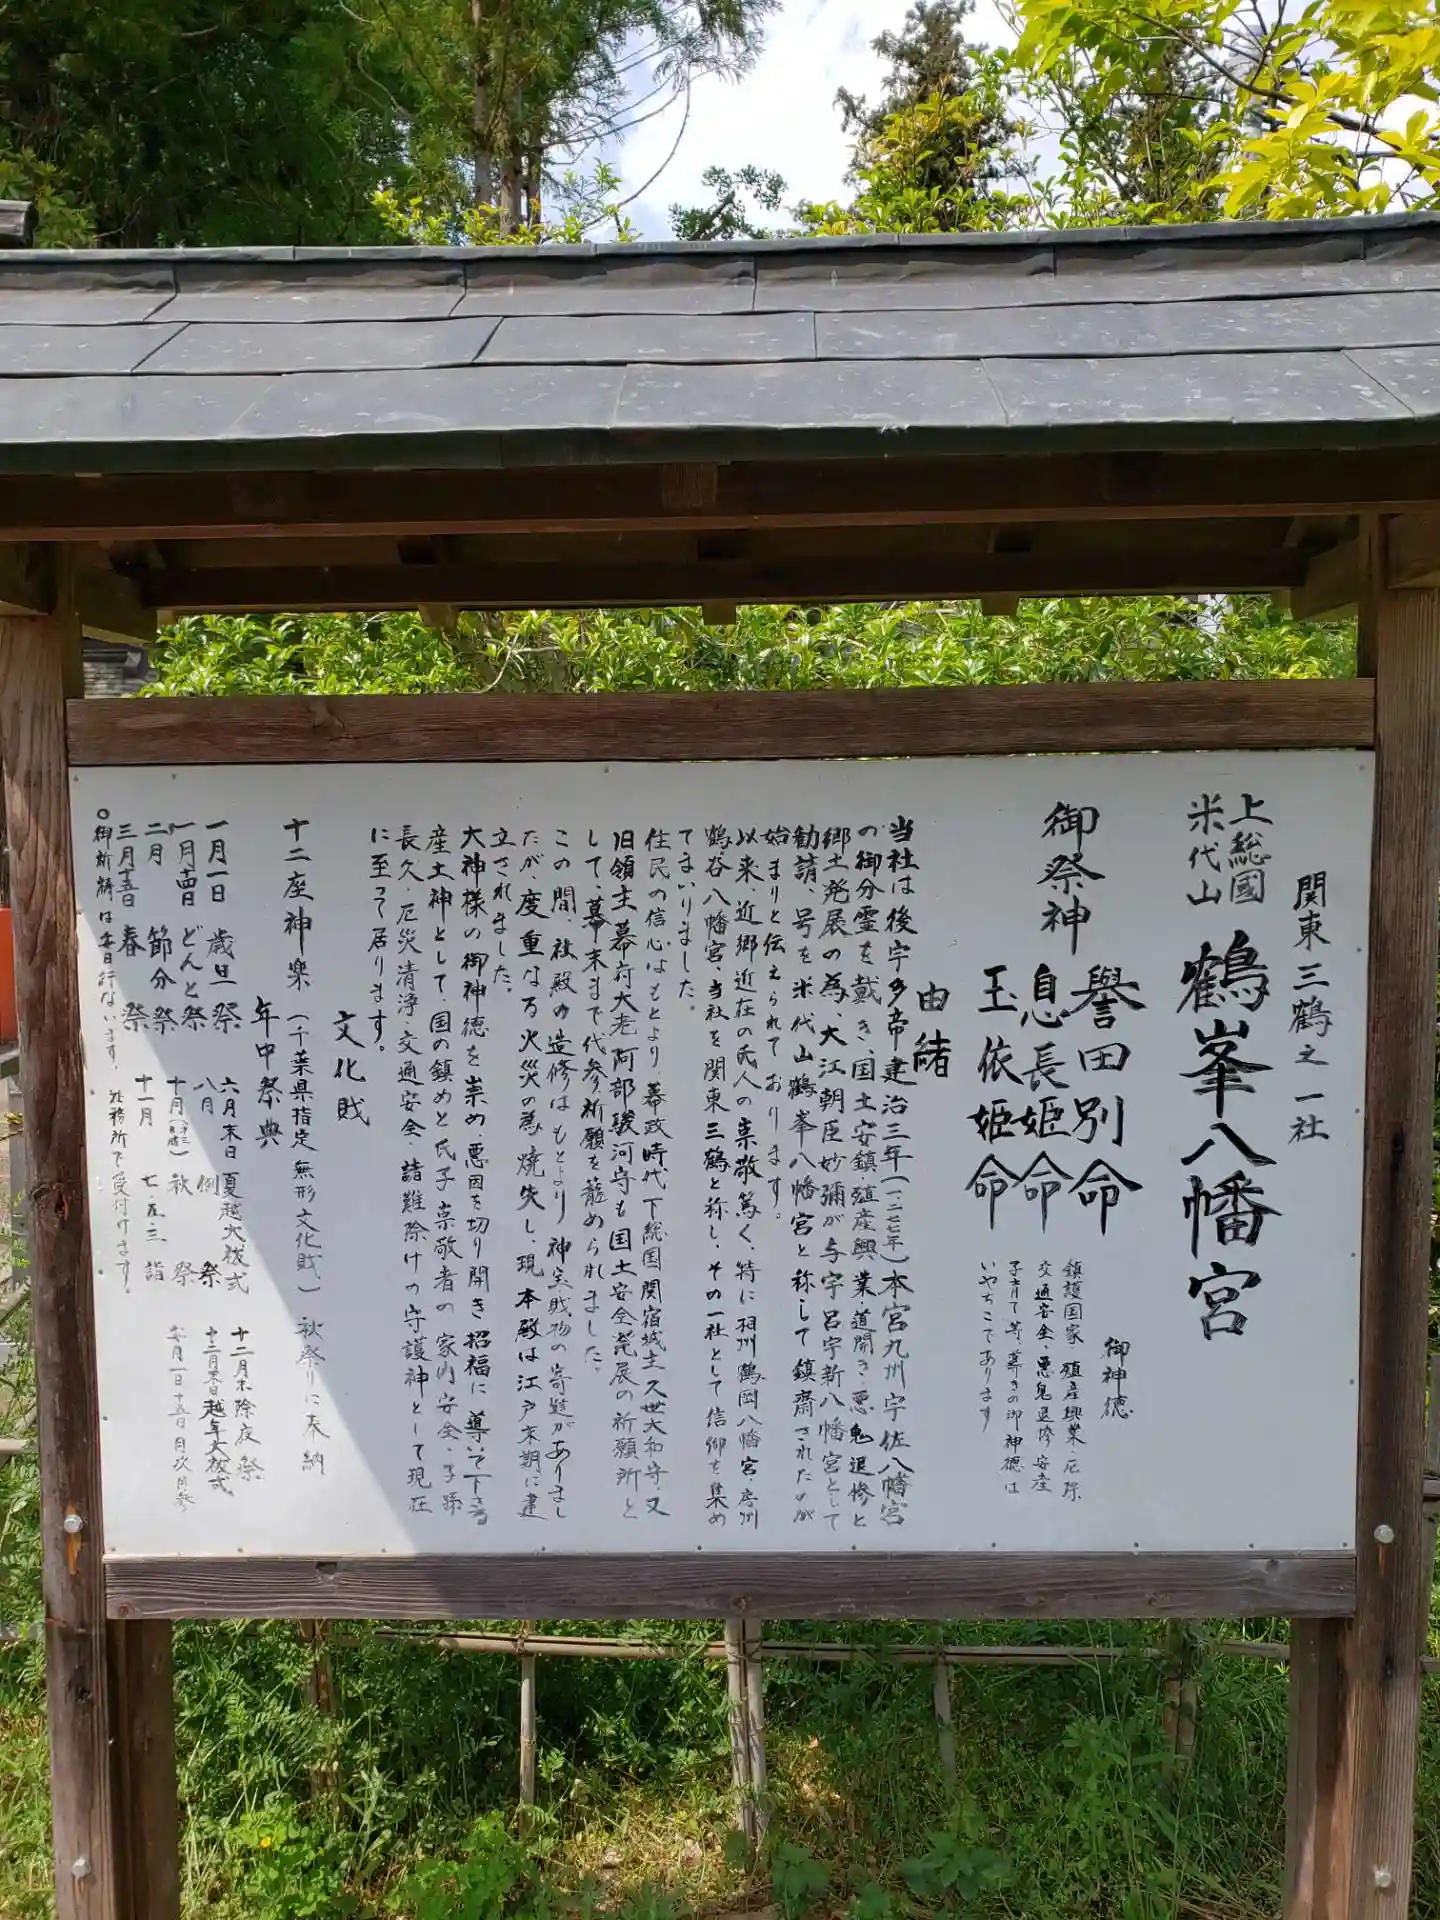 関東三鶴之一社
上総國
米代山
鶴峯八幡宮
御祭神
譽田別命
息長姫命
玉依姫命
御神徳
鎮護国家・殖産興業・厄除
交通安全、悪鬼退修、安産
子育て等、尊きの御神徳は
いやちこであります
由緒
当社は後宇多帝建治三年(一二七七年)本宮九州宇佐八幡宮
の御分霊を戴き、国土安鎮・殖産興業・道開き・悪鬼退修と
郷土発展の為、大江朝臣妙彌が与宇呂宇新八幡宮として
勧請、号を米代山鶴峯八幡宮と称して鎮齋されたのが
始まりと伝えられております。
以来、近郷近在の氏人の崇敬篤く、特に相州鶴岡八幡宮・房州
鶴谷八幡宮、当社を関東三鶴と称し、その一社として信仰を集め
てまいりました。
住民の信心はもとより、幕政時代下総国関宿城主久世大和守、又
旧領主幕府大老阿部駿河守も国土安全発展の祈願所と
して、幕末まで代参祈願を籠められました。
この間、社殿の造修はもとより神宝財物の寄進がありまし
たが、度重なる火災の為焼失し、現本殿は江戸末期に建
立されました。
大神様の御神徳を崇め、悪因を切り開き招福に導いて下さる
産土神として、国の鎮めと氏子崇敬者の家内安全、子孫
長久、厄災清浄、交通安全、諸難除けの守護神として現在
に至って居ります。
文化財
十二座神楽(千葉県指定無形文化財)秋祭りに奉納
年中祭典
一月一日 歳旦祭
一月十四日 どんと祭
二月 節分祭
三月十五日 春祭
六月末日 夏越大祓式
八月 例祭
十月 秋祭
十一月 七・五・三詣
十二月末 除夜祭
十二月末日 越年大祓式
毎月一日十五日 月次月参
○御祈祷は毎日行ないます。社務所で受付けます。